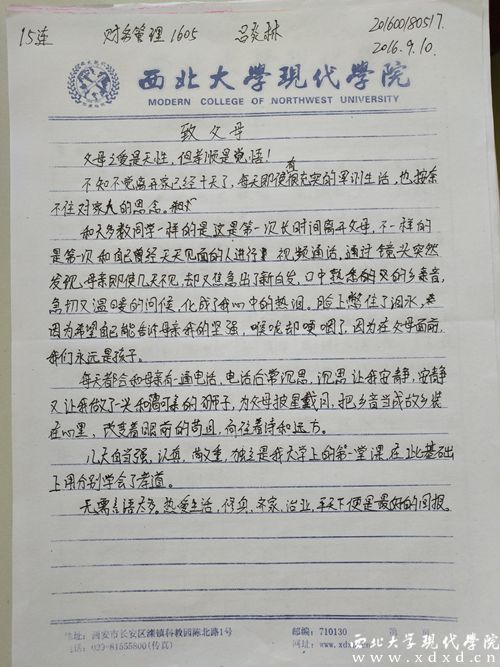 15连 财务管理1605 吕炎琳 201600180517.
2016.9.10.
西北大學現代學院
MODERN COLLEGE OF NORTHWEST UNIVERSITY
致父母
父母之爱是天性,但孝顺是觉悟!
不知不觉离开家已经十天了,每天即使有很充实的军训生活,也按奈
不住对家人的思念。
和大多数同学一样的是这是第一次长时间离开父母,不一样的
是第一次和自己曾经天天见面的人进行视频通话,通过镜头突然
发现,母亲即使几天不见,却又焦急出了新白发,口中熟悉的又的乡秦音,
急切又温暖的问候,化成了我心中的热泪。脸上憋住了泪水,
因为希望自己能告诉母亲我的坚强,喉咙却哽咽了,因为在父母面前,
我们永远是孩子。
每天都会和母亲有一通电话,电话后常沉思,沉思让我安静,安静
又让我做了一头和蔼可亲的狮子,为父母披星戴月,把乡音当成故乡装
在心里,改变着眼前的苟且,向往着诗和远方。
几天自强、认真、尚重,独立是我大学上的第一堂课,在此基础
上用分别学会了孝道。
无需言语太多。热爱生活,修身、齐家、治业,平天下便是最好的回报。
地址:西安市长安区滦镇科教园陈北路1号
电话:029-81555800(传真)
邮编:710130
网址:www.xdxd.cn
西北大学现代学院
www.xdxd.cn